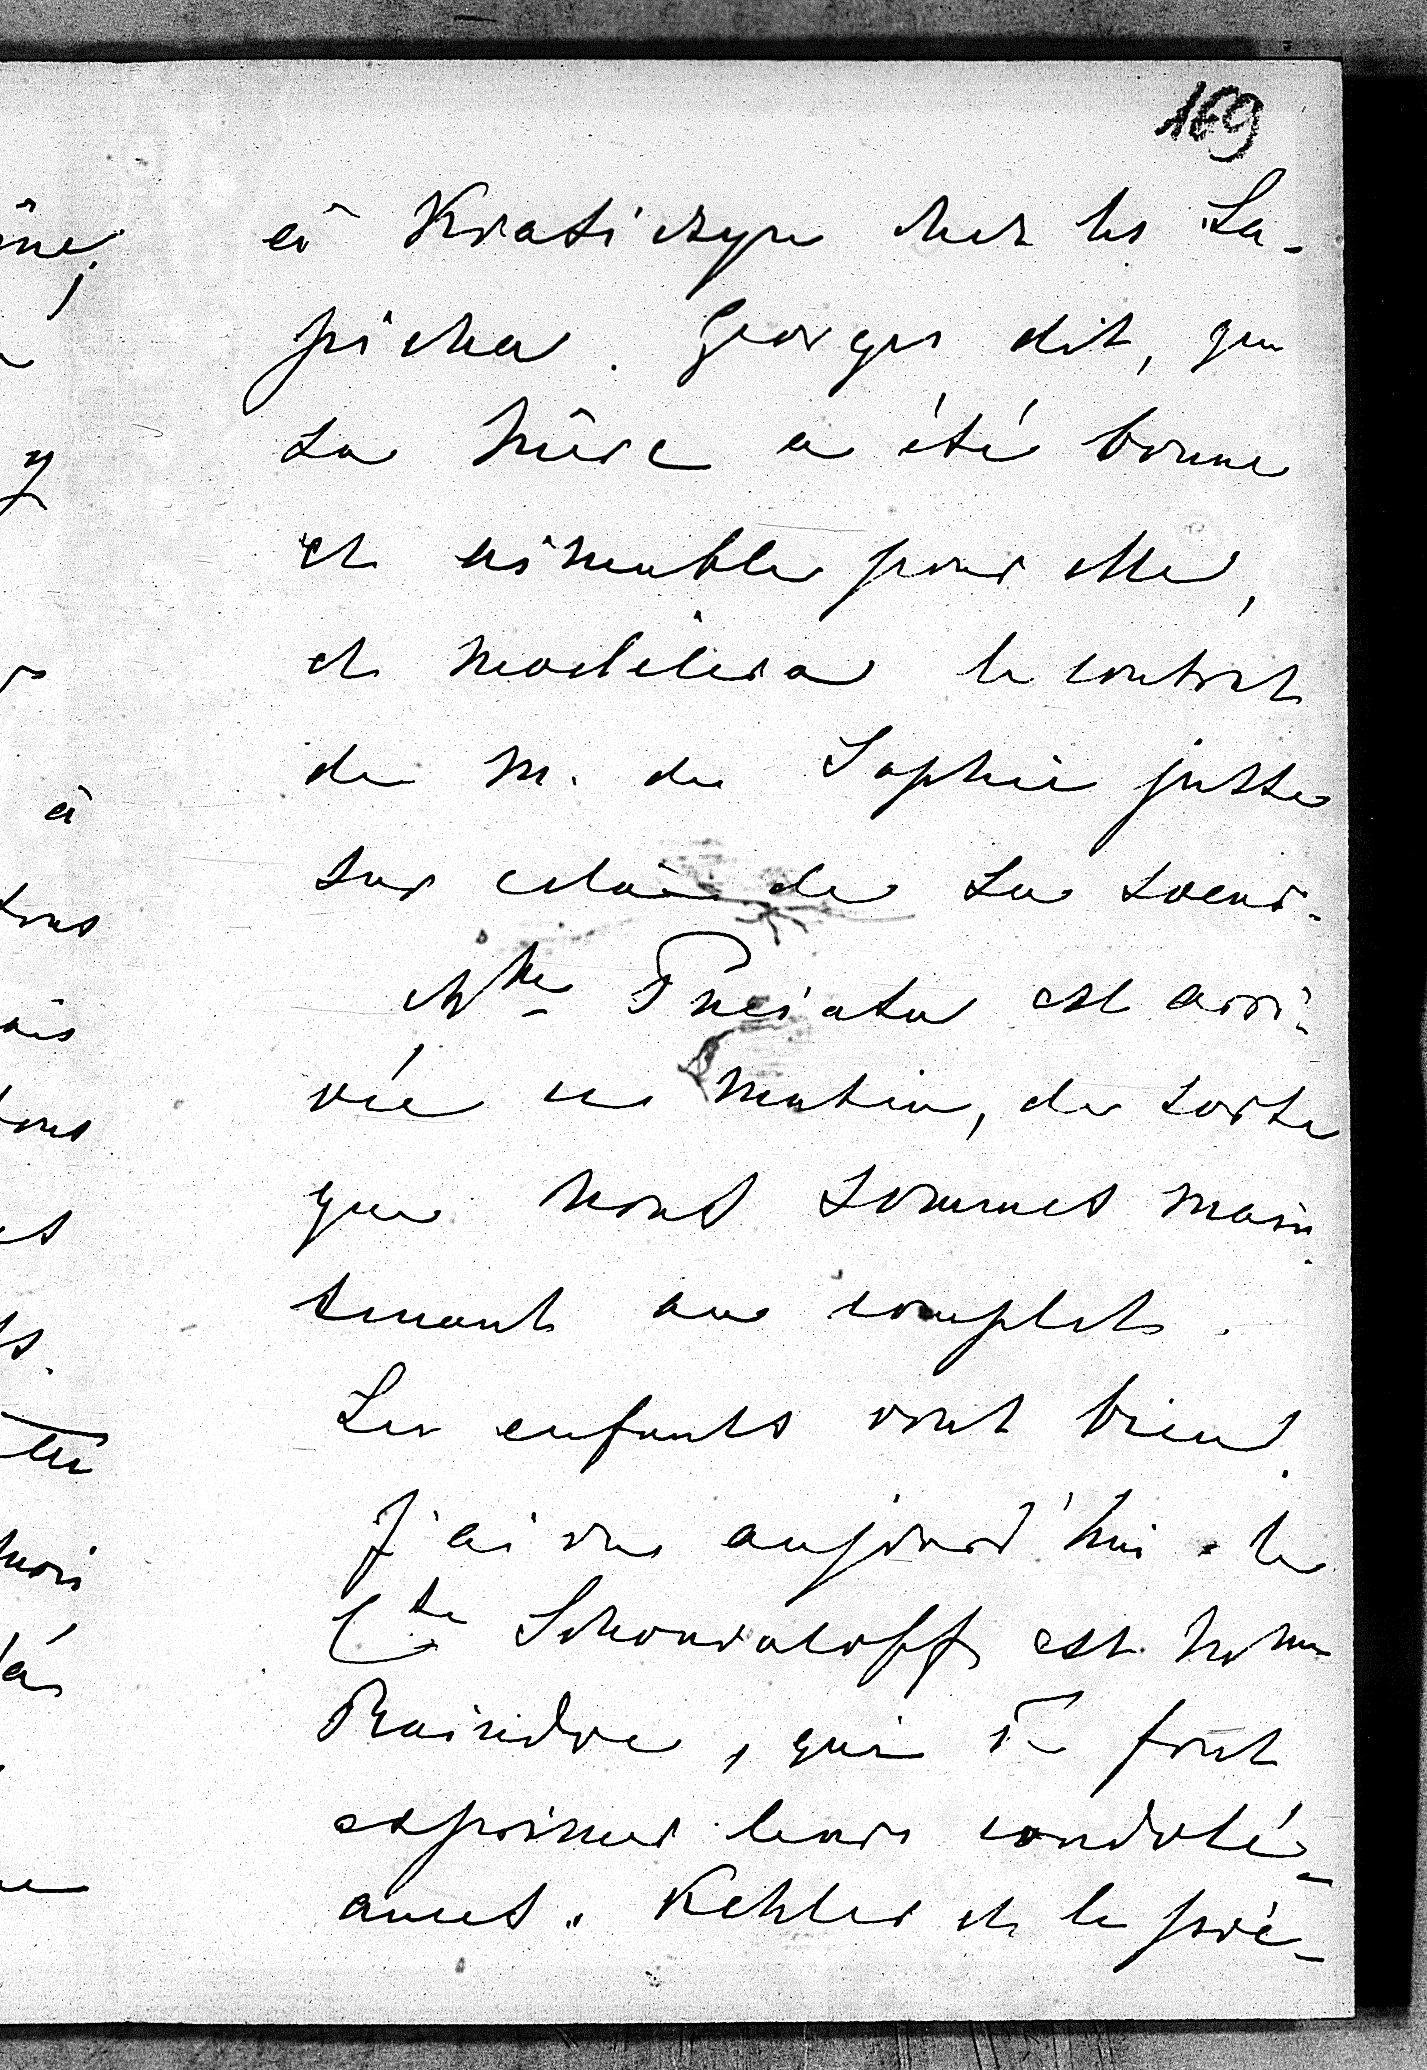 169
à Kraticzyn chez les Sa-
pieha. Georges dit, que
sa mère a été bonne
et aimable pour elle,
et modèlera le contrat
de m. de Sophie juste
sur celui de sa soeur.
Mme Puciata est arri-
vée ce matin, de sorte
que nous sommes main
tenant au complet.
Les enfants vont bien.
J'ai vu aujourd'hui le
Cte Schouvaloff et Mme
Raindre, qui te font
exprimer leurs condolé-
ances. Kehler et le pré-